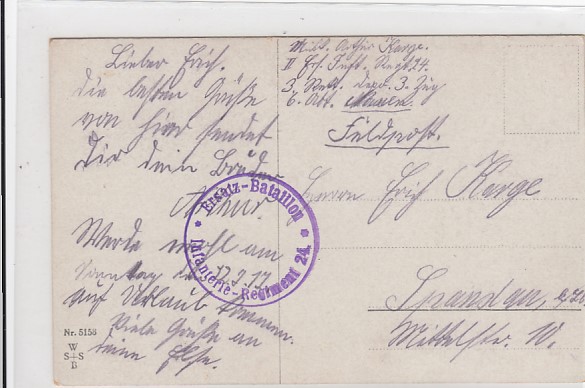 Lieber Erich.
Die besten Grüße
von hier sendet
Dir dein Bruder
Arthur.
Werde wohl am
Sonntag
auf Urlaub kommen.
Viele Grüße an
deine Else.
Nr. 5158
W
S+S
B
Ersatz-Bataillon
Infanterie-Regiment 24.
Arthur Karge.
II Ers. Inft. Regt 24.
3. 3. Zug
Feldpost.
Herrn Erich Karge
Spandau
Mittelstr. 10.